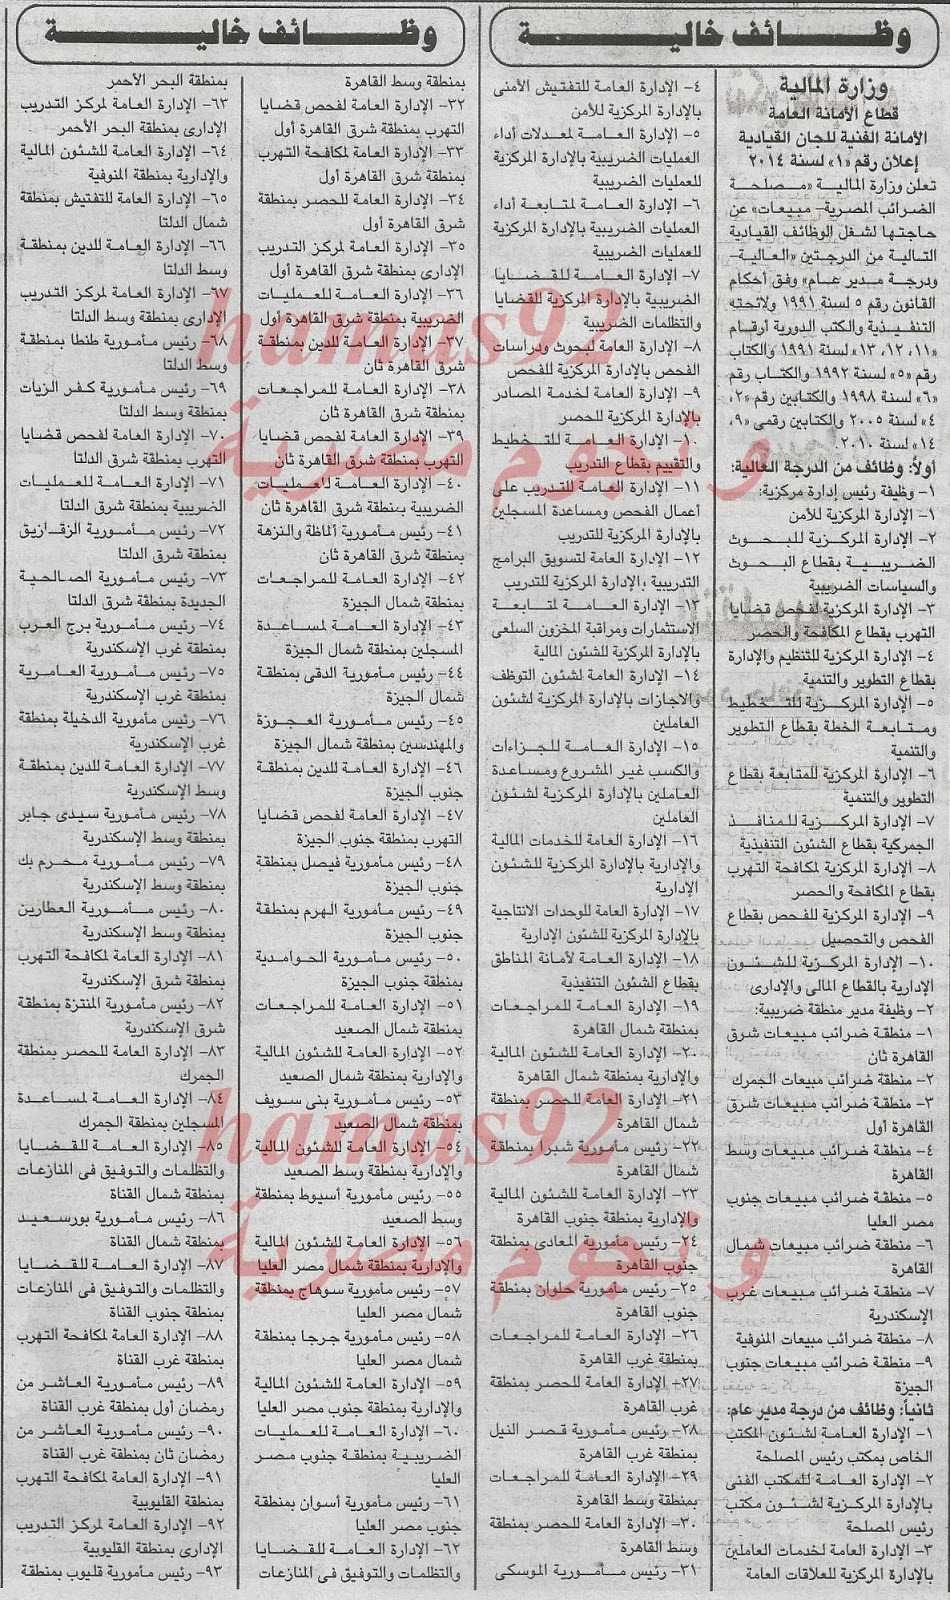 وظـــائف خاليـــة
وزارة المالية
قطاع الأمانة العامة
الأمانة الفنية للجان القيادية
إعلان رقم «١» لسنة ٢٠١٤
تعلن وزارة المالية «مصلحة
الضرائب المصرية- مبيعات» عن
حاجتها لشغل الوظائف القيادية
التالية من الدرجتين «العالية-
ودرجة مدير عام» وفق أحكام
القانون رقم ٥ لسنة ١٩٩١ ولائحته
التنفيذية والكتب الدورية أرقام
«١١، ١٢، ١٣» لسنة ١٩٩١ والكتاب
رقم «٥» لسنة ١٩٩٢ والكتاب رقم
«٦» لسنة ١٩٩٨ والكتابين رقم «٢،
٤» لسنة ٢٠٠٥ والكتابين رقمى «٩،
١٤» لسنة ٢٠١٠.
أولاً: وظائف من الدرجة العالية:
١- وظيفة رئيس إدارة مركزية:
١- الإدارة المركزية للأمن
٢- الإدارة المركزية للبحوث
الضريبية بقطاع البحوث
والسياسات الضريبية
٣- الإدارة المركزية لفحص قضايا
التهرب بقطاع المكافحة والحصر
٤- الإدارة المركزية للتنظيم والإدارة
بقطاع التطوير والتنمية
٥- الإدارة المركزية للتخطيط
ومتابعة الخطة بقطاع التطوير
والتنمية
٦- الإدارة المركزية للمتابعة بقطاع
التطوير والتنمية
٧- الإدارة المركزية للمنافذ
الجمركية بقطاع الشئون التنفيذية
٨- الإدارة المركزية لمكافحة التهرب
بقطاع المكافحة والحصر
٩- الإدارة المركزية للفحص بقطاع
الفحص والتحصيل
١٠- الإدارة المركزية للشئون
الإدارية بالقطاع المالى والإدارى
٢- وظيفة مدير منطقة ضريبية:
١- منطقة ضرائب مبيعات شرق
القاهرة ثان
٢- منطقة ضرائب مبيعات الجمرك
٣- منطقة ضرائب مبيعات شرق
القاهرة أول
٤- منطقة ضرائب مبيعات وسط
القاهرة
٥- منطقة ضرائب مبيعات جنوب
مصر العليا
٦- منطقة ضرائب مبيعات شمال
القاهرة
٧- منطقة ضرائب مبيعات غرب
الإسكندرية
٨- منطقة ضرائب مبيعات المنوفية
٩- منطقة ضرائب مبيعات جنوب
الجيزة
ثانياً: وظائف من درجة مدير عام:
١- الإدارة العامة لشئون المكتب
الخاص بمكتب رئيس المصلحة
٢- الإدارة العامة للمكتب الفنى
بالإدارة المركزية لشئون مكتب
رئيس المصلحة
٣- الإدارة العامة لخدمات العاملين
بالإدارة المركزية للعلاقات العامة
٤- الإدارة العامة للتفتيش الأمنى
بالإدارة المركزية للأمن
٥- الإدارة العامة لمعدلات أداء
العمليات الضريبية بالإدارة المركزية
للعمليات الضريبية
٦- الإدارة العامة لمتابعة أداء
العمليات الضريبية بالإدارة المركزية
للعمليات الضريبية
٧- الإدارة العامة للقضايا
الضريبية بالإدارة المركزية للقضايا
والتظلمات الضريبية
٨- الإدارة العامة لبحوث ودراسات
الفحص بالإدارة المركزية للفحص
٩- الإدارة العامة لخدمة المصادر
بالإدارة المركزية للحصر
١٠- الإدارة العامة للتخطيط
والتقييم بقطاع التدريب
١١- الإدارة العامة للتدريب على
أعمال الفحص ومساعدة المسجلين
بالإدارة المركزية للتدريب
١٢- الإدارة العامة لتسويق البرامج
التدريبية بالإدارة المركزية للتدريب
١٣- الإدارة العامة لمتابعة
الاستثمارات ومراقبة المخزون السلعى
بالإدارة المركزية للشئون المالية
١٤- الإدارة العامة لشئون التوظف
والاجازات بالإدارة المركزية لشئون
العاملين
١٥- الإدارة العامة للجزاءات
والكسب غير المشروع ومساعدة
العاملين بالإدارة المركزية لشئون
العاملين
١٦- الإدارة العامة للخدمات المالية
والإدارية بالإدارة المركزية للشئون
الإدارية
١٧- الإدارة العامة للوحدات الانتاجية
بالإدارة المركزية للشئون الإدارية
١٨- الإدارة العامة لأمانة المناطق
بقطاع الشئون التنفيذية
١٩- الإدارة العامة للمراجعات
بمنطقة شمال القاهرة
٢٠- الإدارة العامة للشئون المالية
والإدارية بمنطقة شمال القاهرة
٢١- الإدارة العامة للحصر بمنطقة
شمال القاهرة
٢٢- رئيس مأمورية شبرا بمنطقة
شمال القاهرة
٢٣- الإدارة العامة للشئون المالية
والإدارية بمنطقة جنوب القاهرة
٢٤- رئيس مأمورية المعادى بمنطقة
جنوب القاهرة
٢٥- رئيس مأمورية حلوان بمنطقة
جنوب القاهرة
٢٦- الإدارة العامة للمراجعات
بمنطقة غرب القاهرة
٢٧- الإدارة العامة للحصر بمنطقة
غرب القاهرة
٢٨- رئيس مأمورية قصر النيل
بمنطقة غرب القاهرة
٢٩- الإدارة العامة للمراجعات
بمنطقة وسط القاهرة
٣٠- الإدارة العامة للحصر بمنطقة
وسط القاهرة
٣١- رئيس مأمورية الموسكى
وظـــائف خاليـــة
بمنطقة وسط القاهرة
٣٢- الإدارة العامة لفحص قضايا
التهرب بمنطقة شرق القاهرة أول
٣٣- الإدارة العامة لمكافحة التهرب
بمنطقة شرق القاهرة أول
٣٤- الإدارة العامة للحصر بمنطقة
شرق القاهرة أول
٣٥- الإدارة العامة لمركز التدريب
الإدارى بمنطقة شرق القاهرة أول
٣٦- الإدارة العامة للعمليات
الضريبية بمنطقة شرق القاهرة أول
٣٧- الإدارة العامة للدين بمنطقة
شرق القاهرة ثان
٣٨- الإدارة العامة للمراجعات
بمنطقة شرق القاهرة ثان
٣٩- الإدارة العامة لفحص قضايا
التهرب بمنطقة شرق القاهرة ثان
٤٠- الإدارة العامة للعمليات
الضريبية بمنطقة شرق القاهرة ثان
٤١- رئيس مأمورية ألماظة والنزهة
بمنطقة شرق القاهرة ثان
٤٢- الإدارة العامة للمراجعات
بمنطقة شمال الجيزة
٤٣- الإدارة العامة لمساعدة
المسجلين بمنطقة شمال الجيزة
٤٤- رئيس مأمورية الدقى بمنطقة
شمال الجيزة
٤٥- رئيس مأمورية العجوزة
والمهندسين بمنطقة شمال الجيزة
٤٦- الإدارة العامة للدين بمنطقة
جنوب الجيزة
٤٧- الإدارة العامة لفحص قضايا
التهرب بمنطقة جنوب الجيزة
٤٨- رئيس مأمورية فيصل بمنطقة
جنوب الجيزة
٤٩- رئيس مأمورية الهرم بمنطقة
جنوب الجيزة
٥٠- رئيس مأمورية الحوامدية
بمنطقة جنوب الجيزة
٥١- الإدارة العامة للمراجعات
بمنطقة شمال الصعيد
٥٢- الإدارة العامة للشئون المالية
والإدارية بمنطقة شمال الصعيد
٥٣- رئيس مأمورية بنى سويف
بمنطقة شمال الصعيد
٥٤- الإدارة العامة للشئون المالية
والإدارية بمنطقة وسط الصعيد
٥٥- رئيس مأمورية أسيوط بمنطقة
وسط الصعيد
٥٦- الإدارة العامة للشئون المالية
والإدارية بمنطقة شمال مصر العليا
٥٧- رئيس مأمورية سوهاج بمنطقة
شمال مصر العليا
٥٨- رئيس مأمورية جرجا بمنطقة
شمال مصر العليا
٥٩- الإدارة العامة للشئون المالية
والإدارية بمنطقة جنوب مصر العليا
٦٠- الإدارة العامة للعمليات
الضريبية بمنطقة جنوب مصر
العليا
٦١- رئيس مأمورية أسوان بمنطقة
جنوب مصر العليا
٦٢- الإدارة العامة للقضايا
والتظلمات والتوفيق فى المنازعات
بمنطقة البحر الأحمر
٦٣- الإدارة العامة لمركز التدريب
الإدارى بمنطقة البحر الأحمر
٦٤- الإدارة العامة للشئون المالية
والإدارية بمنطقة المنوفية
٦٥- الإدارة العامة للتفتيش بمنطقة
شمال الدلتا
٦٦- الإدارة العامة للدين بمنطقة
وسط الدلتا
٦٧- الإدارة العامة لمركز التدريب
الإدارى بمنطقة وسط الدلتا
٦٨- رئيس مأمورية طنطا بمنطقة
وسط الدلتا
٦٩- رئيس مأمورية كفر الزيات
بمنطقة وسط الدلتا
٧٠- الإدارة العامة لفحص قضايا
التهرب بمنطقة شرق الدلتا
٧١- الإدارة العامة للعمليات
الضريبية بمنطقة شرق الدلتا
٧٢- رئيس مأمورية الزقازيق
بمنطقة شرق الدلتا
٧٣- رئيس مأمورية الصالحية
الجديدة بمنطقة شرق الدلتا
٧٤- رئيس مأمورية برج العرب
بمنطقة غرب الإسكندرية
٧٥- رئيس مأمورية العامرية
بمنطقة غرب الإسكندرية
٧٦- رئيس مأمورية الدخيلة بمنطقة
غرب الإسكندرية
٧٧- الإدارة العامة للدين بمنطقة
وسط الإسكندرية
٧٨- رئيس مأمورية سيدى جابر
بمنطقة وسط الإسكندرية
٧٩- رئيس مأمورية محرم بك
بمنطقة وسط الإسكندرية
٨٠- رئيس مأمورية العطارين
بمنطقة وسط الإسكندرية
٨١- الإدارة العامة لمكافحة التهرب
بمنطقة شرق الإسكندرية
٨٢- رئيس مأمورية المنتزة بمنطقة
شرق الإسكندرية
٨٣- الإدارة العامة للحصر بمنطقة
الجمرك
٨٤- الإدارة العامة لمساعدة
المسجلين بمنطقة الجمرك
٨٥- الإدارة العامة للقضايا
والتظلمات والتوفيق فى المنازعات
بمنطقة شمال القناة
٨٦- رئيس مأمورية بورسعيد
بمنطقة شمال القناة
٨٧- الإدارة العامة للقضايا
والتظلمات والتوفيق فى المنازعات
بمنطقة جنوب القناة
٨٨- الإدارة العامة لمكافحة التهرب
بمنطقة غرب القناة
٨٩- رئيس مأمورية العاشر من
رمضان أول بمنطقة غرب القناة
٩٠- رئيس مأمورية العاشر من
رمضان ثان بمنطقة غرب القناة
٩١- الإدارة العامة لمكافحة التهرب
بمنطقة القليوبية
٩٢- الإدارة العامة لمركز التدريب
الإدارى بمنطقة القليوبية
٩٣- رئيس مأمورية قليوب بمنطقة
hamas92
و نجوم مصرية
hamas92
و نجوم مصرية